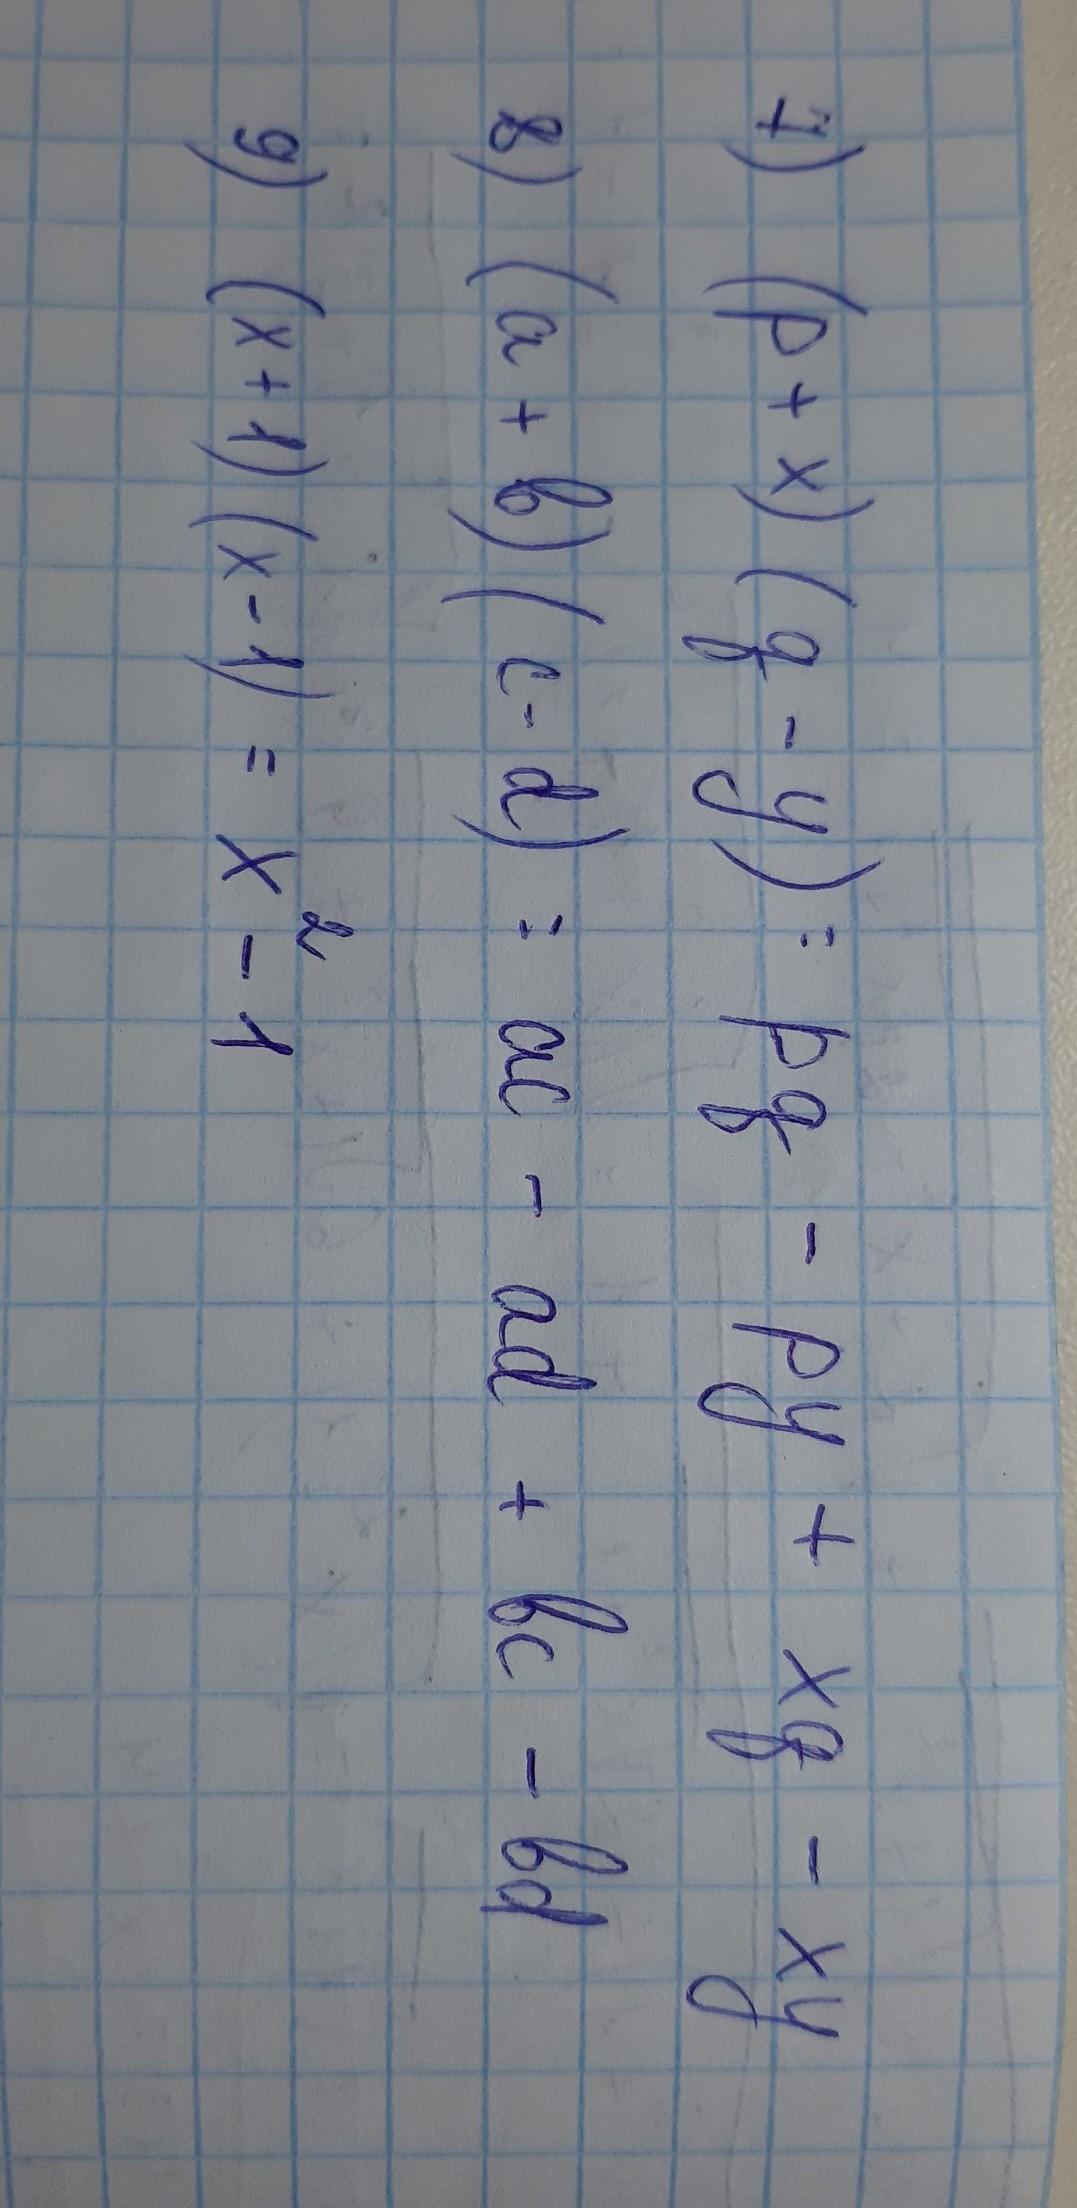 7) (p + x) (q - y) = pq - py + xq - xy
8) (a + b) (c - d) = ac - ad + bc - bd
9) (x + 1) (x - 1) = x² - 1